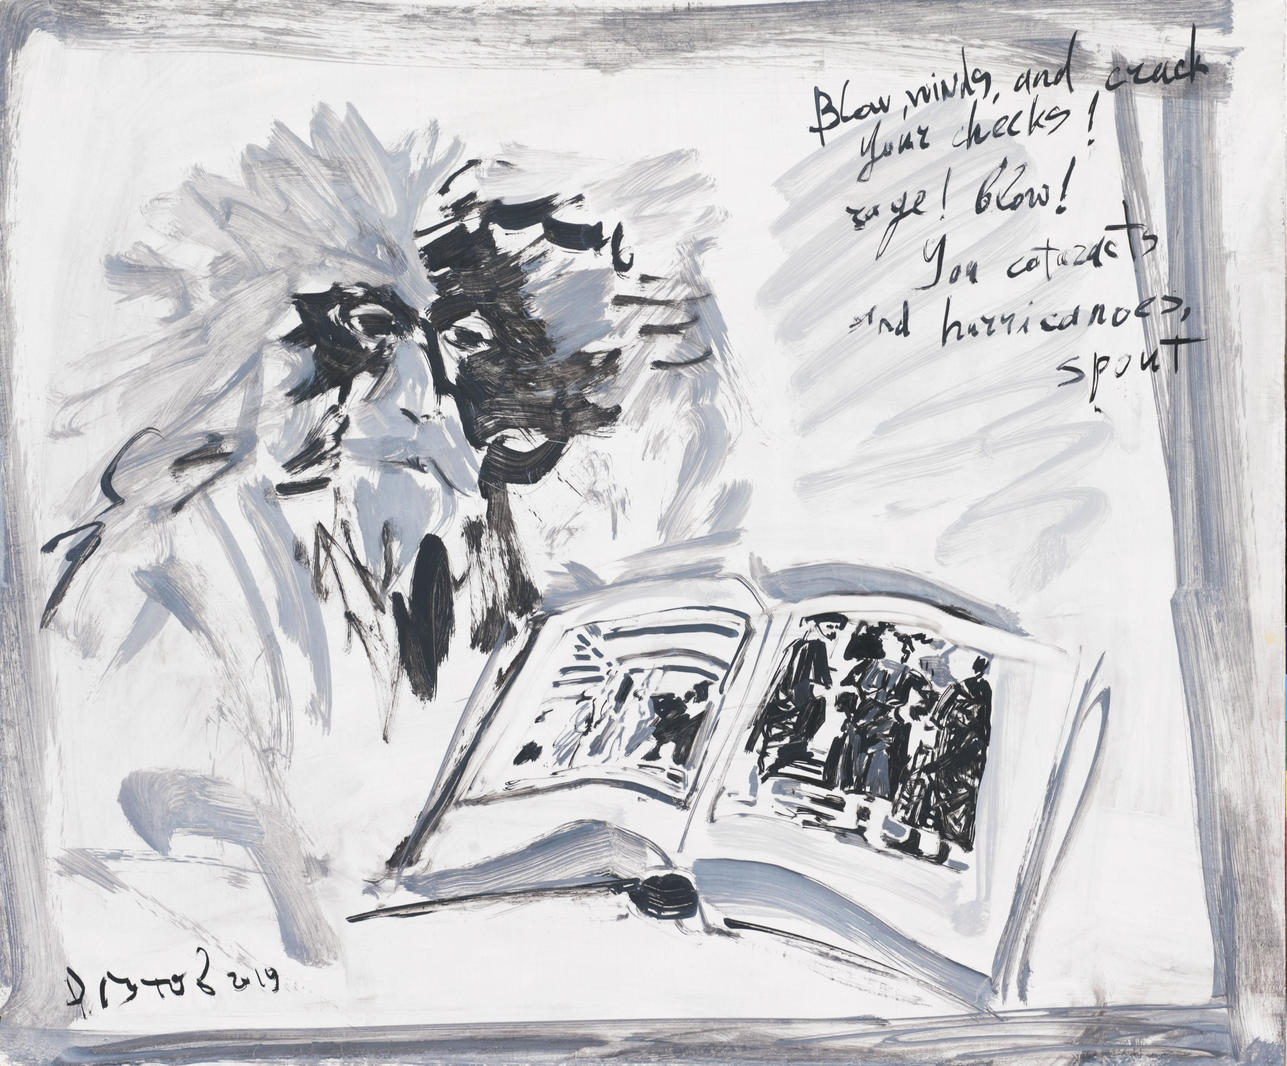 Blow, winds, and crack
your cheeks!
rage! blow!
You cataracts
and hurricanoes,
spout
Д. Гутов 2019